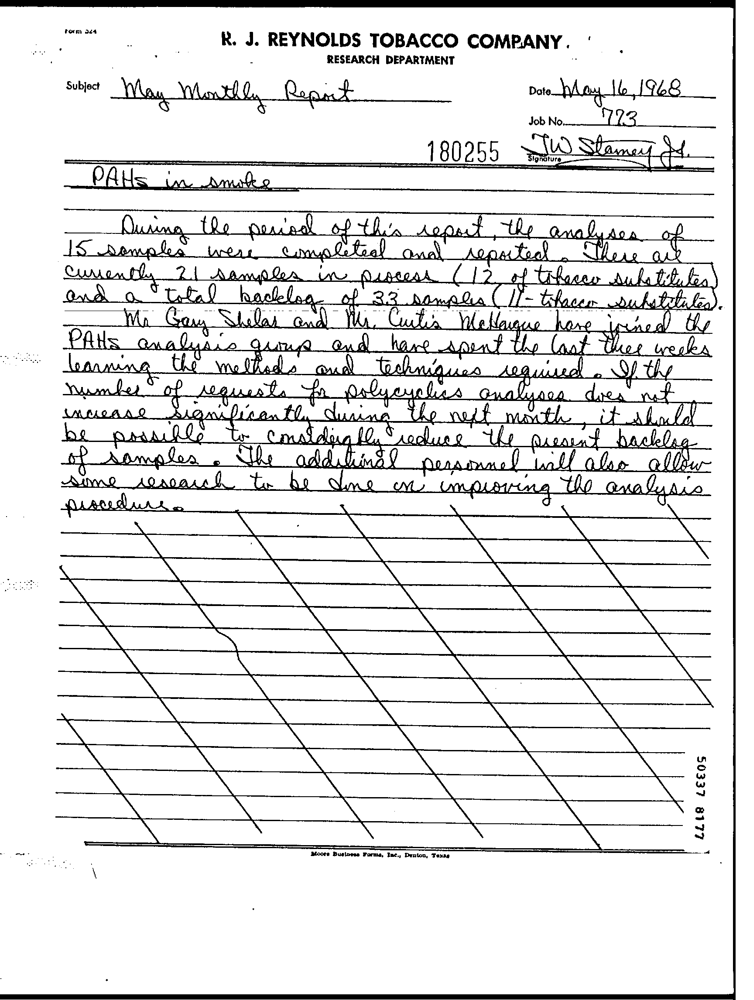 Form 324
R. J. REYNOLDS TOBACCO COMPANY.
RESEARCH DEPARTMENT
Subject May Monthly Report
Date May 16, 1968
Job No. 773
180255
JW Stamey Jr.
Signature
PAHs in smoke
During the period of this report, the analyses of
15 samples were completed and reported. There are
currently 21 samples in process (12 of tobacco substitutes)
and a total backlog of 33 samples (11-tobacco substitutes).
Mr Gary Shelar and Mr. Curtis McHargue have joined the
PAHs analysis group and have spent the last three weeks
learning the methods and techniques required. If the
number of requests for polycyclics analyses does not
increase significantly during the next month, it should
be possible to considerably reduce the present backlog
of samples. The additional personnel will also allow
some research to be done on improving the analysis
procedure.
50337 8177
Moore Business Forms, Inc., Denton, Texas